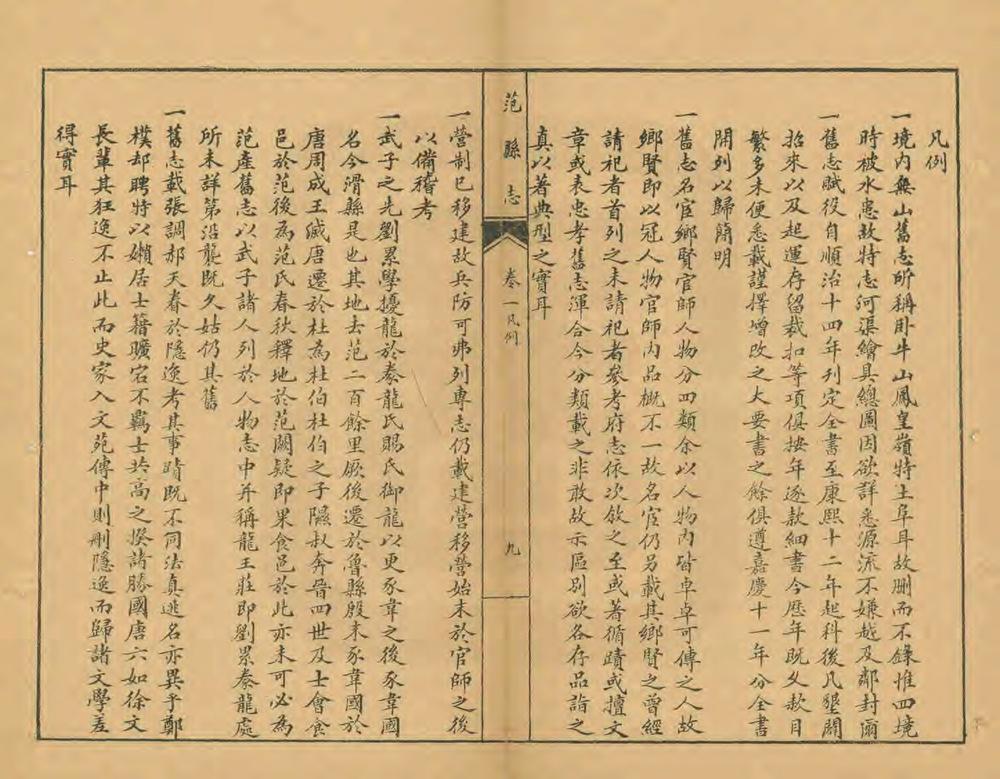 凡例
一境內無山舊志所稱卧牛山鳳皇嶺特土阜耳故刪而不錄惟四境
時被水患故特志河渠繪具總圖因欲詳悉源流不嫌越及鄰封爾
一舊志賦役自順治十四年刊定全書至康熙十二年起科後凡墾闢
招來以及起運存留裁扣等項俱按年逐款細書今歷年既久款目
繁多未便悉載謹擇增改之大要書之餘俱遵嘉慶十一年分全書
開列以歸簡明
一舊志名宦鄉賢官師人物分四類余以人物內皆卓卓可傳之人故
鄉賢即以冠人物官師內品概不一故名宦仍另載其鄉賢之曾經
請祀者首列之未請祀者參考府志依次敘之至或著循蹟或擅文
章或表忠孝舊志渾合今分類載之非敢故示區別欲各存品詣之
真以著典型之實耳
范縣志
卷一凡例
九
一營制已移建故兵防可弗列專志仍載建營移營始末於官師之後
以備稽考
一武子之先劉累學擾龍於豢龍氏賜氏御龍以更豕韋之後豕韋國
名今滑縣是也其地去范二百餘里厥後遷於魯縣殷末豕韋國於
唐周成王滅唐遷於杜為杜伯杜伯之子隰叔奔晉四世及士會食
邑於范後為范氏春秋釋地於范闕疑即果食邑於此亦未可必為
范產舊志以武子諸人列於人物志中并稱龍王莊即劉累豢龍處
所未詳第沿襲既久姑仍其舊
一舊志載張調郝天春於隱逸考其事蹟既不同法真逃名亦異乎鄭
樸却聘特以嬾居士籍曠宕不羈士林高之揆諸勝國唐六如徐文
長輩其狂逸不止此而史家入文苑傳中則刪隱逸而歸諸文學差
得實耳